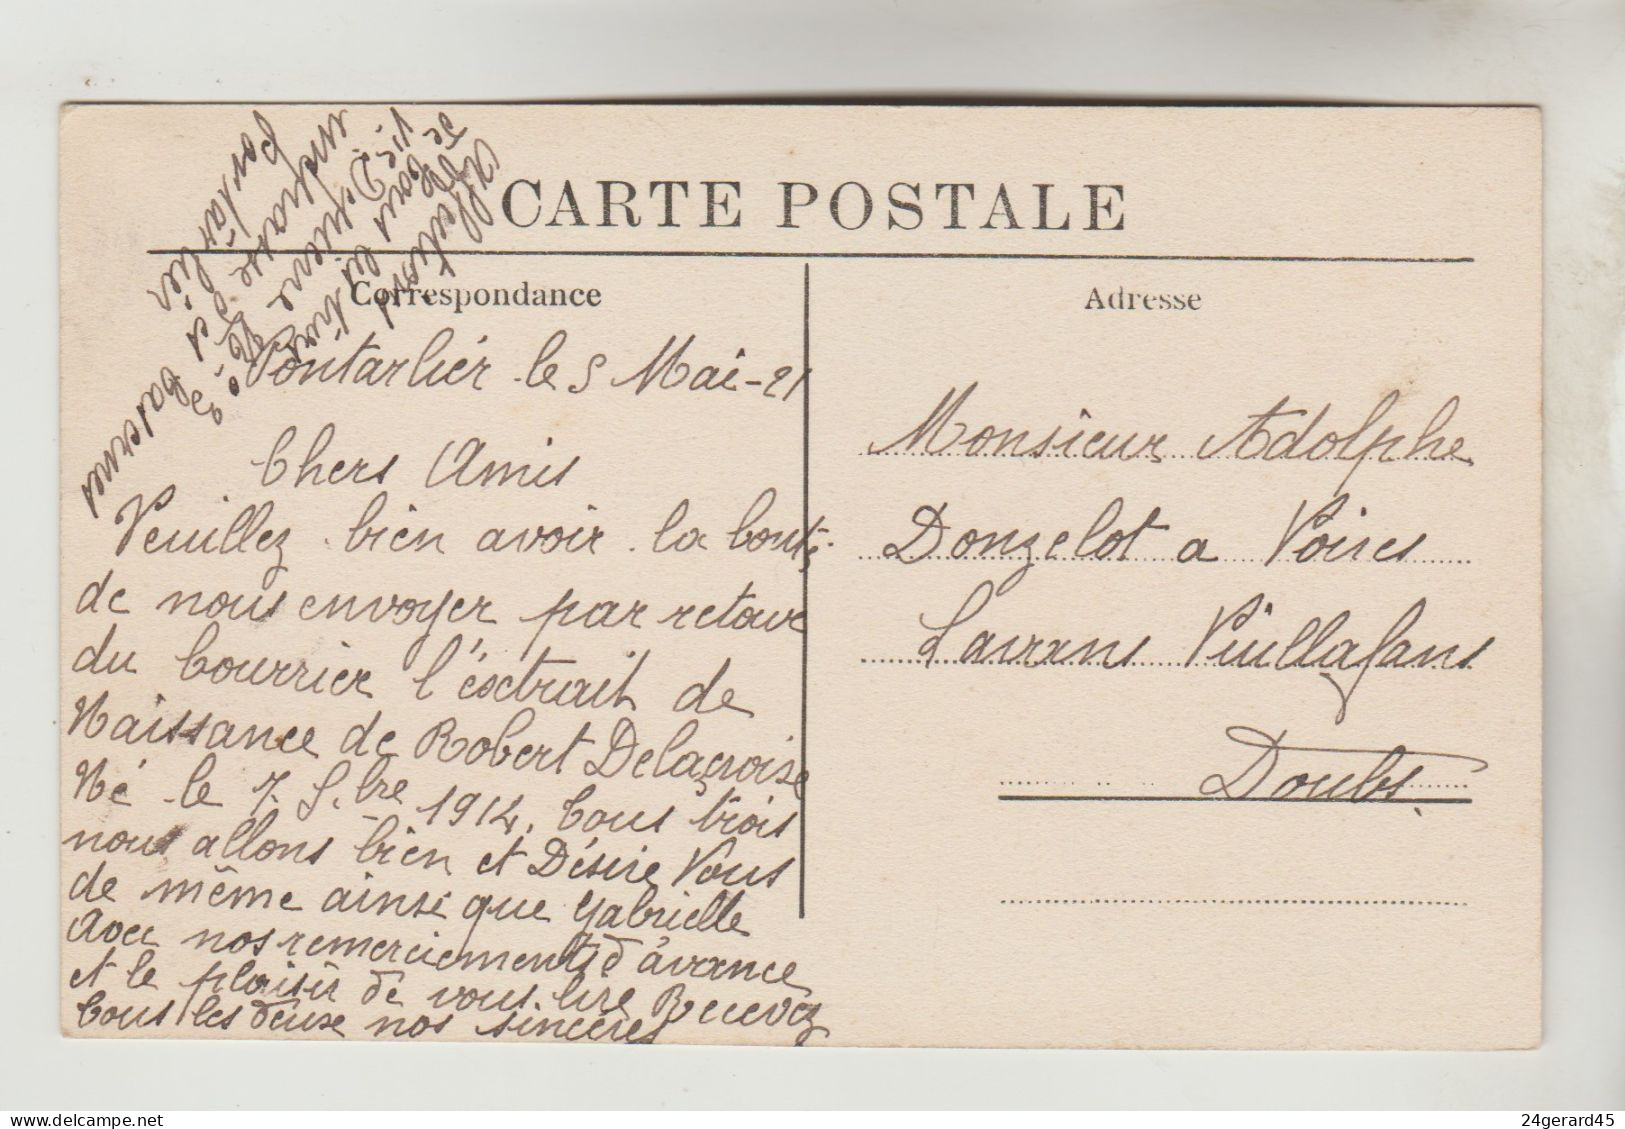 CARTE POSTALE
Correspondance
Adresse
Pontarliér le 5 Mai-21
Chers Amis
Veuillez bien avoir la bonté
de nous envoyer par retour
du Courrier l'éxtrait de
Naissance de Robert Delacroix
Né le 7. S.bre 1914. Tous trois
nous allons bien et Désire Vous
de même ainsi que Gabrielle
Avec nos remerciements d'avance
et le plaisir de vous lire Recevez
Tous les deuxe nos sincères
Affections
de tous les trois
Pontarliér
Monsieur Adolphe
Donzelot a Voires
Lavans Vuillafans
Doubs.
24gerard45